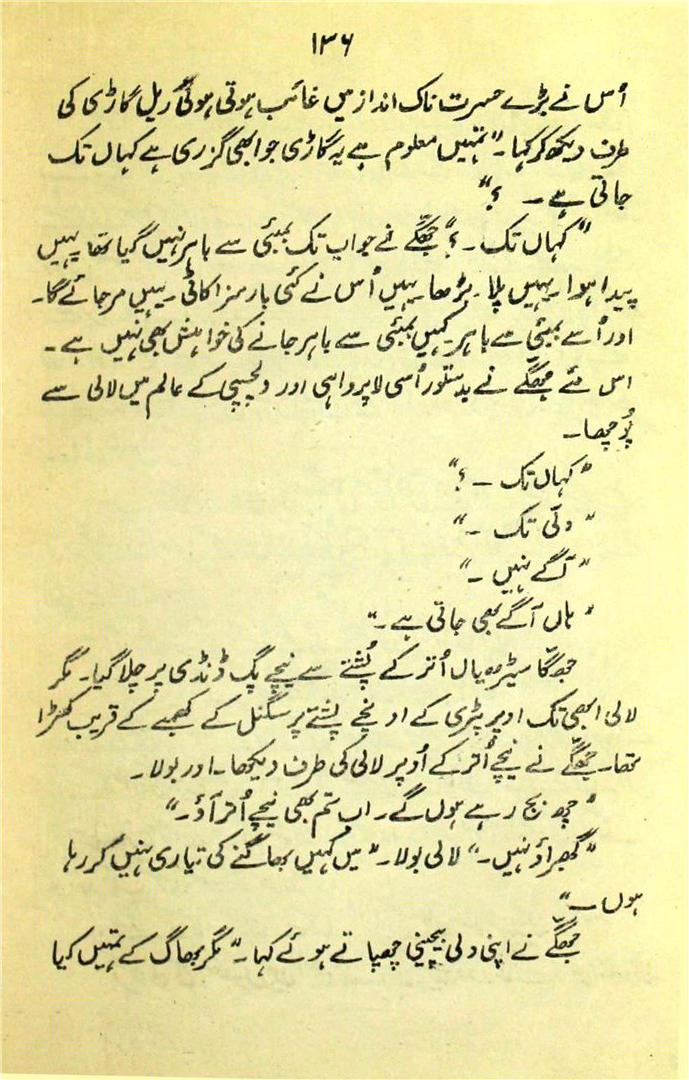 ۱۳۶
اُس نے بڑے حسرت ناک انداز میں غائب ہوتی ہوئی ریل گاڑی کی
طرف دیکھ کر کہا۔ "تمہیں معلوم ہے یہ گاڑی جو ابھی گزری ہے کہاں تک
جاتی ہے ۔ ؟"
"کہاں تک ۔ ؟" جھگّے نے جو اب تک بمبئی سے باہر نہیں گیا تھا یہیں
پیدا ہوا۔ یہیں پلا۔ بڑھا۔ یہیں اُس نے کئی بار سزا کاٹی۔ یہیں مر جائے گا۔
اور اُسے بمبئی سے باہر۔ کہیں بمبئی سے باہر جانے کی خواہش بھی نہیں ہے ۔
اس لئے جھگّے نے بدستور اُسی لاپرواہی اور دلچسپی کے عالم میں لالی سے
پُوچھا۔
"کہاں تک ۔ ؟"
"دلّی تک ۔"
"آگے نہیں ۔"
"ہاں آگے بھی جاتی ہے ۔"
جھگّا سیڑھیاں اُتر کے پُشتے سے نیچے پگ ڈنڈی پر چلا گیا۔ مگر
لالی ابھی تک اوپر پٹری کے اونچے پشتے پر سگنل کے کھمبے کے قریب کھڑا
تھا۔ جھگّے نے نیچے اُتر کے اُوپر لالی کی طرف دیکھا۔ اور بولا۔
"چھ بج رہے ہوں گے۔ اب تم بھی نیچے اُتر آؤ۔"
"گھبراؤ نہیں۔" لالی بولا۔ "میں کہیں بھاگنے کی تیاری نہیں کر رہا
ہوں ۔"
جھگّے نے اپنی دلی بیچینی چھپاتے ہوئے کہا۔ "مگر بھاگ کے تمہیں کیا